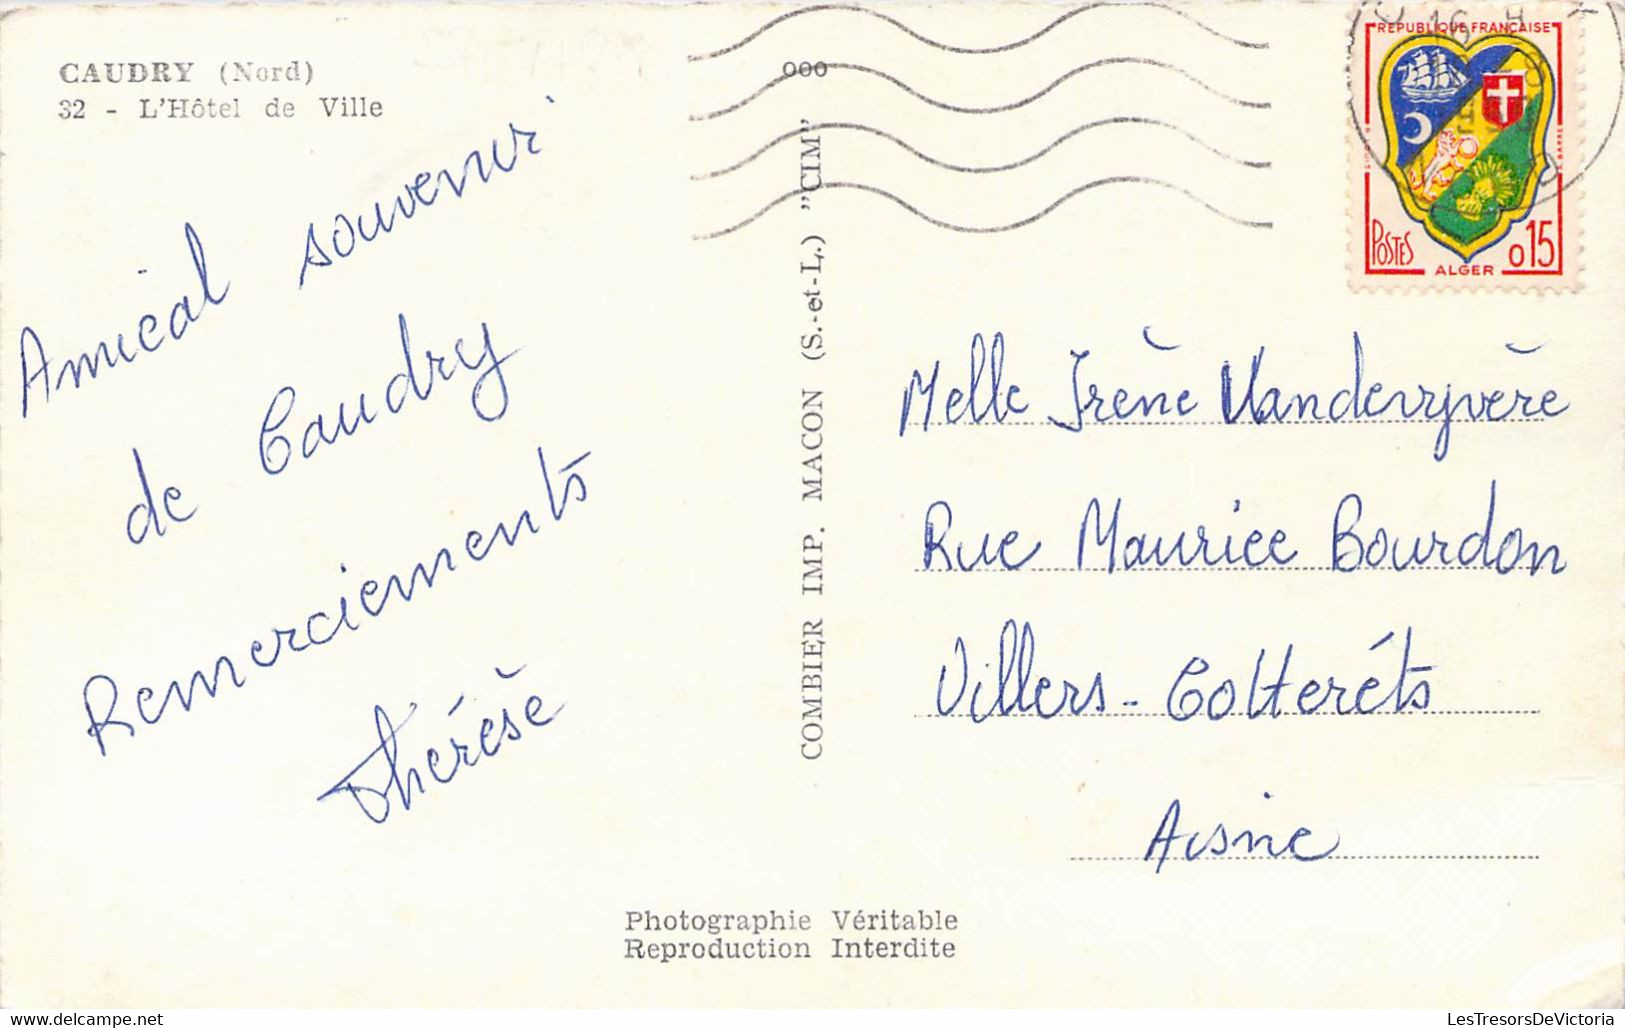 CAUDRY (Nord)
32 - L'Hôtel de Ville
Amical souvenir
de Caudry
Remerciements
Thérèse
000
COMBIER IMP. MACON (S.-et-L.) "CIM"
REPUBLIQUE FRANÇAISE
POSTES
ALGER
0,15
Melle Irène Vandevyvère
Rue Maurice Bourdon
Villers-Cotteréts
Aisne
Photographie Véritable
Reproduction Interdite
delcampe.net
LesTresorsDeVictoria